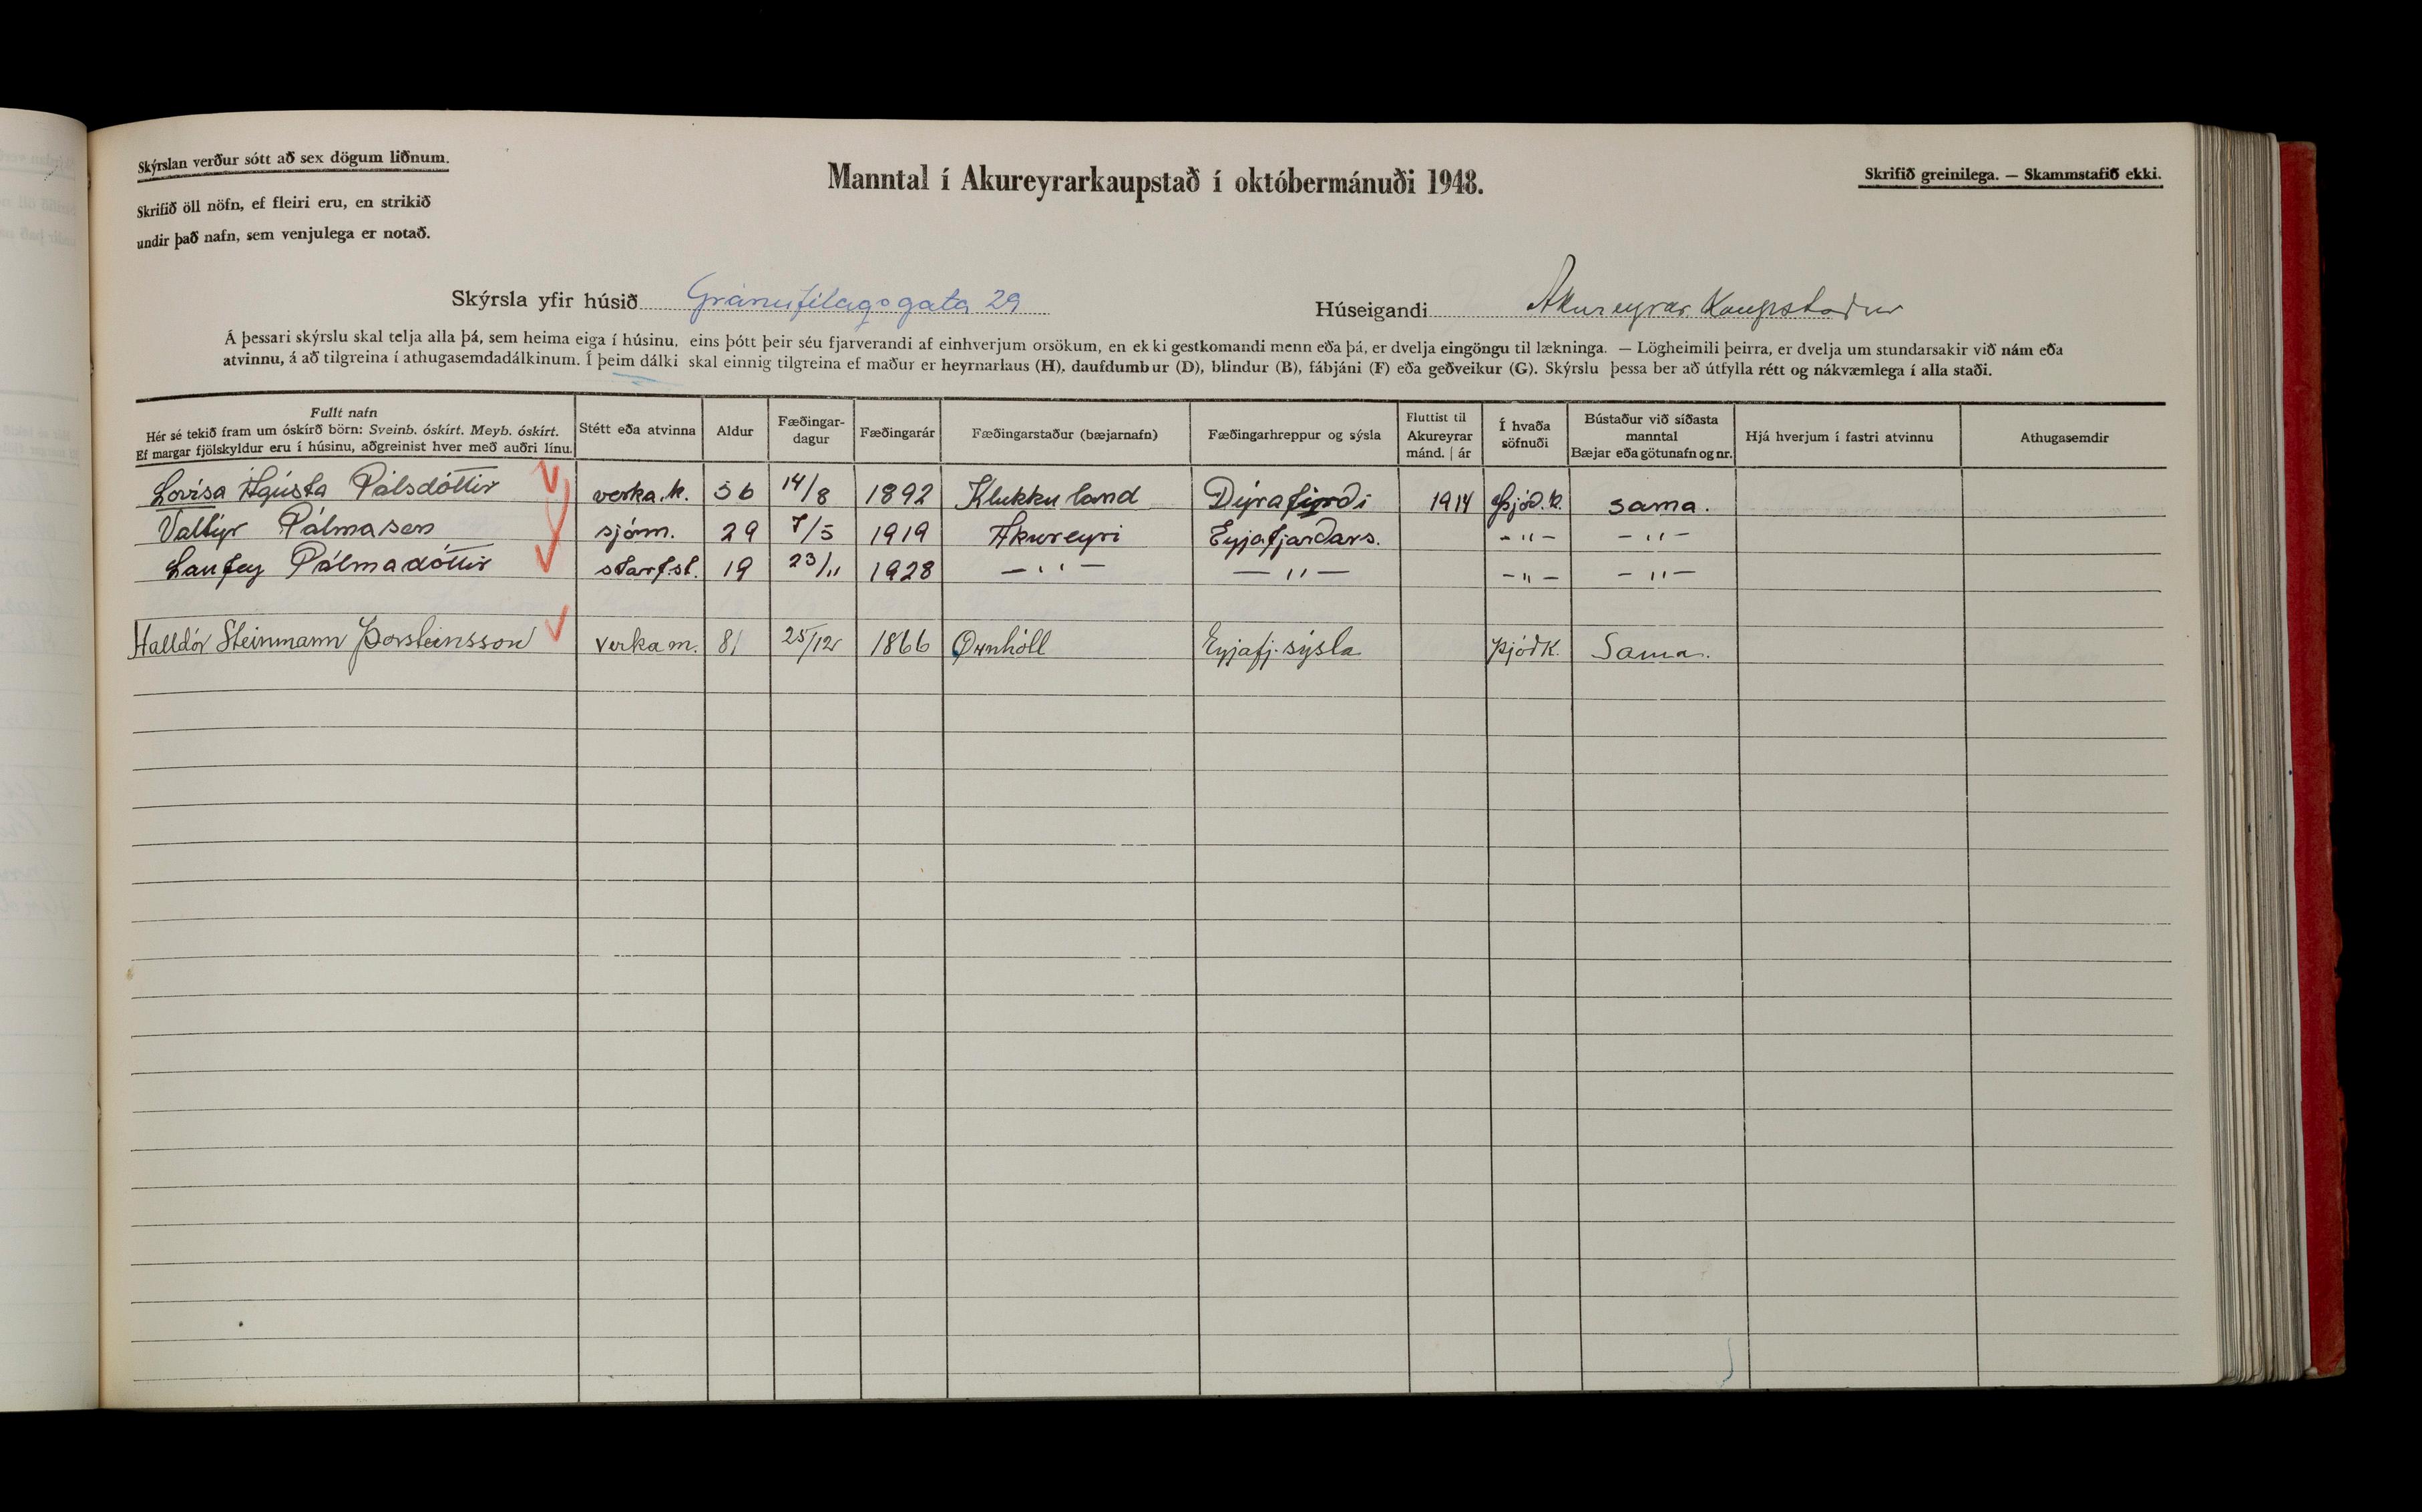 Skýrslan verður sótt að sex dögum liðnum.
Skrifið öll nöfn, ef fleiri eru, en strikið
undir það nafn, sem venjulega er notað.
Manntal í Akureyrarkaupstað í októbermánuði 1948.
Skrifið greinilega. — Skammstafið ekki.
Skýrsla yfir húsið Gránufélagsgata 29
Húseigandi Akureyrar Kaupstaður
Á þessari skýrslu skal telja alla þá, sem heima eiga í húsinu, eins þótt þeir séu fjarverandi af einhverjum orsökum, en ekki gestkomandi menn eða þá, er dvelja eingöngu til lækninga. — Lögheimili þeirra, er dvelja um stundarsakir við nám eða
atvinnu, á að tilgreina í athugasemdadálkinum. Í þeim dálki skal einnig tilgreina ef maður er heyrnarlaus (H), daufdumbur (D), blindur (B), fábjáni (F) eða geðveikur (G). Skýrslu þessa ber að útfylla rétt og nákvæmlega í alla staði.
Fullt nafn
Hér sé tekið fram um óskírð börn: Sveinb. óskírt. Meyb. óskírt.
Ef margar fjölskyldur eru í húsinu, aðgreinist hver með auðri línu.
Stétt eða atvinna
Aldur
Fæðingar-
dagur
Fæðingarár
Fæðingarstaður (bæjarnafn)
Fæðingarhreppur og sýsla
Fluttist til
Akureyrar
mánd. | ár
Í hvaða
söfnuði
Bústaður við síðasta
manntal
Bæjar eða götunafn og nr.
Hjá hverjum í fastri atvinnu
Athugasemdir
Lovísa Ágústa Pálsdóttir verka.k. 56 14/8 1892 Klukkuland Dýrafirði 1914 Þjóð.k. sama.
Valtýr Pálmason sjóm. 29 7/5 1919 Akureyri Eyjafjarðars. -"- -"-
Laufey Pálmadóttir starfst. 19 23/11 1928 -"- -"- -"- -"-
Halldór Steinmann Þorsteinsson verkam. 81 25/12 1866 Eyjafj.sýsla Þjóðk. Sama.